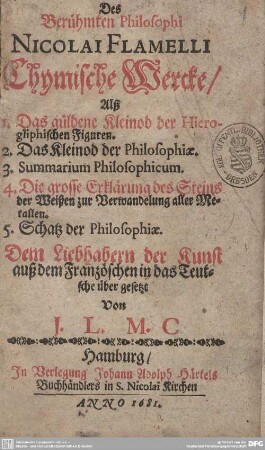 Des
Berühmten Philosophi
NICOLAI FLAMELLI
Chymische Wercke/
Alß
1. Das güldene Kleinod der Hiero-
gliphischen Figuren.
2. Das Kleinod der Philosophiæ.
3. Summarium Philosophicum.
4. Die grosse Erklärung des Steins
der Weißen zur Verwandelung aller Me-
tallen.
5. Schatz der Philosophiæ.
Dem Liebhabern der Kunst
auß dem Französchen in das Teut-
sche über gesetzt
Von
J. L. M. C
Hamburg/
In Verlegung Johann Adolph Härtels
Buchhändlers in S. Nicolai Kirchen
ANNO 1681.
DFG